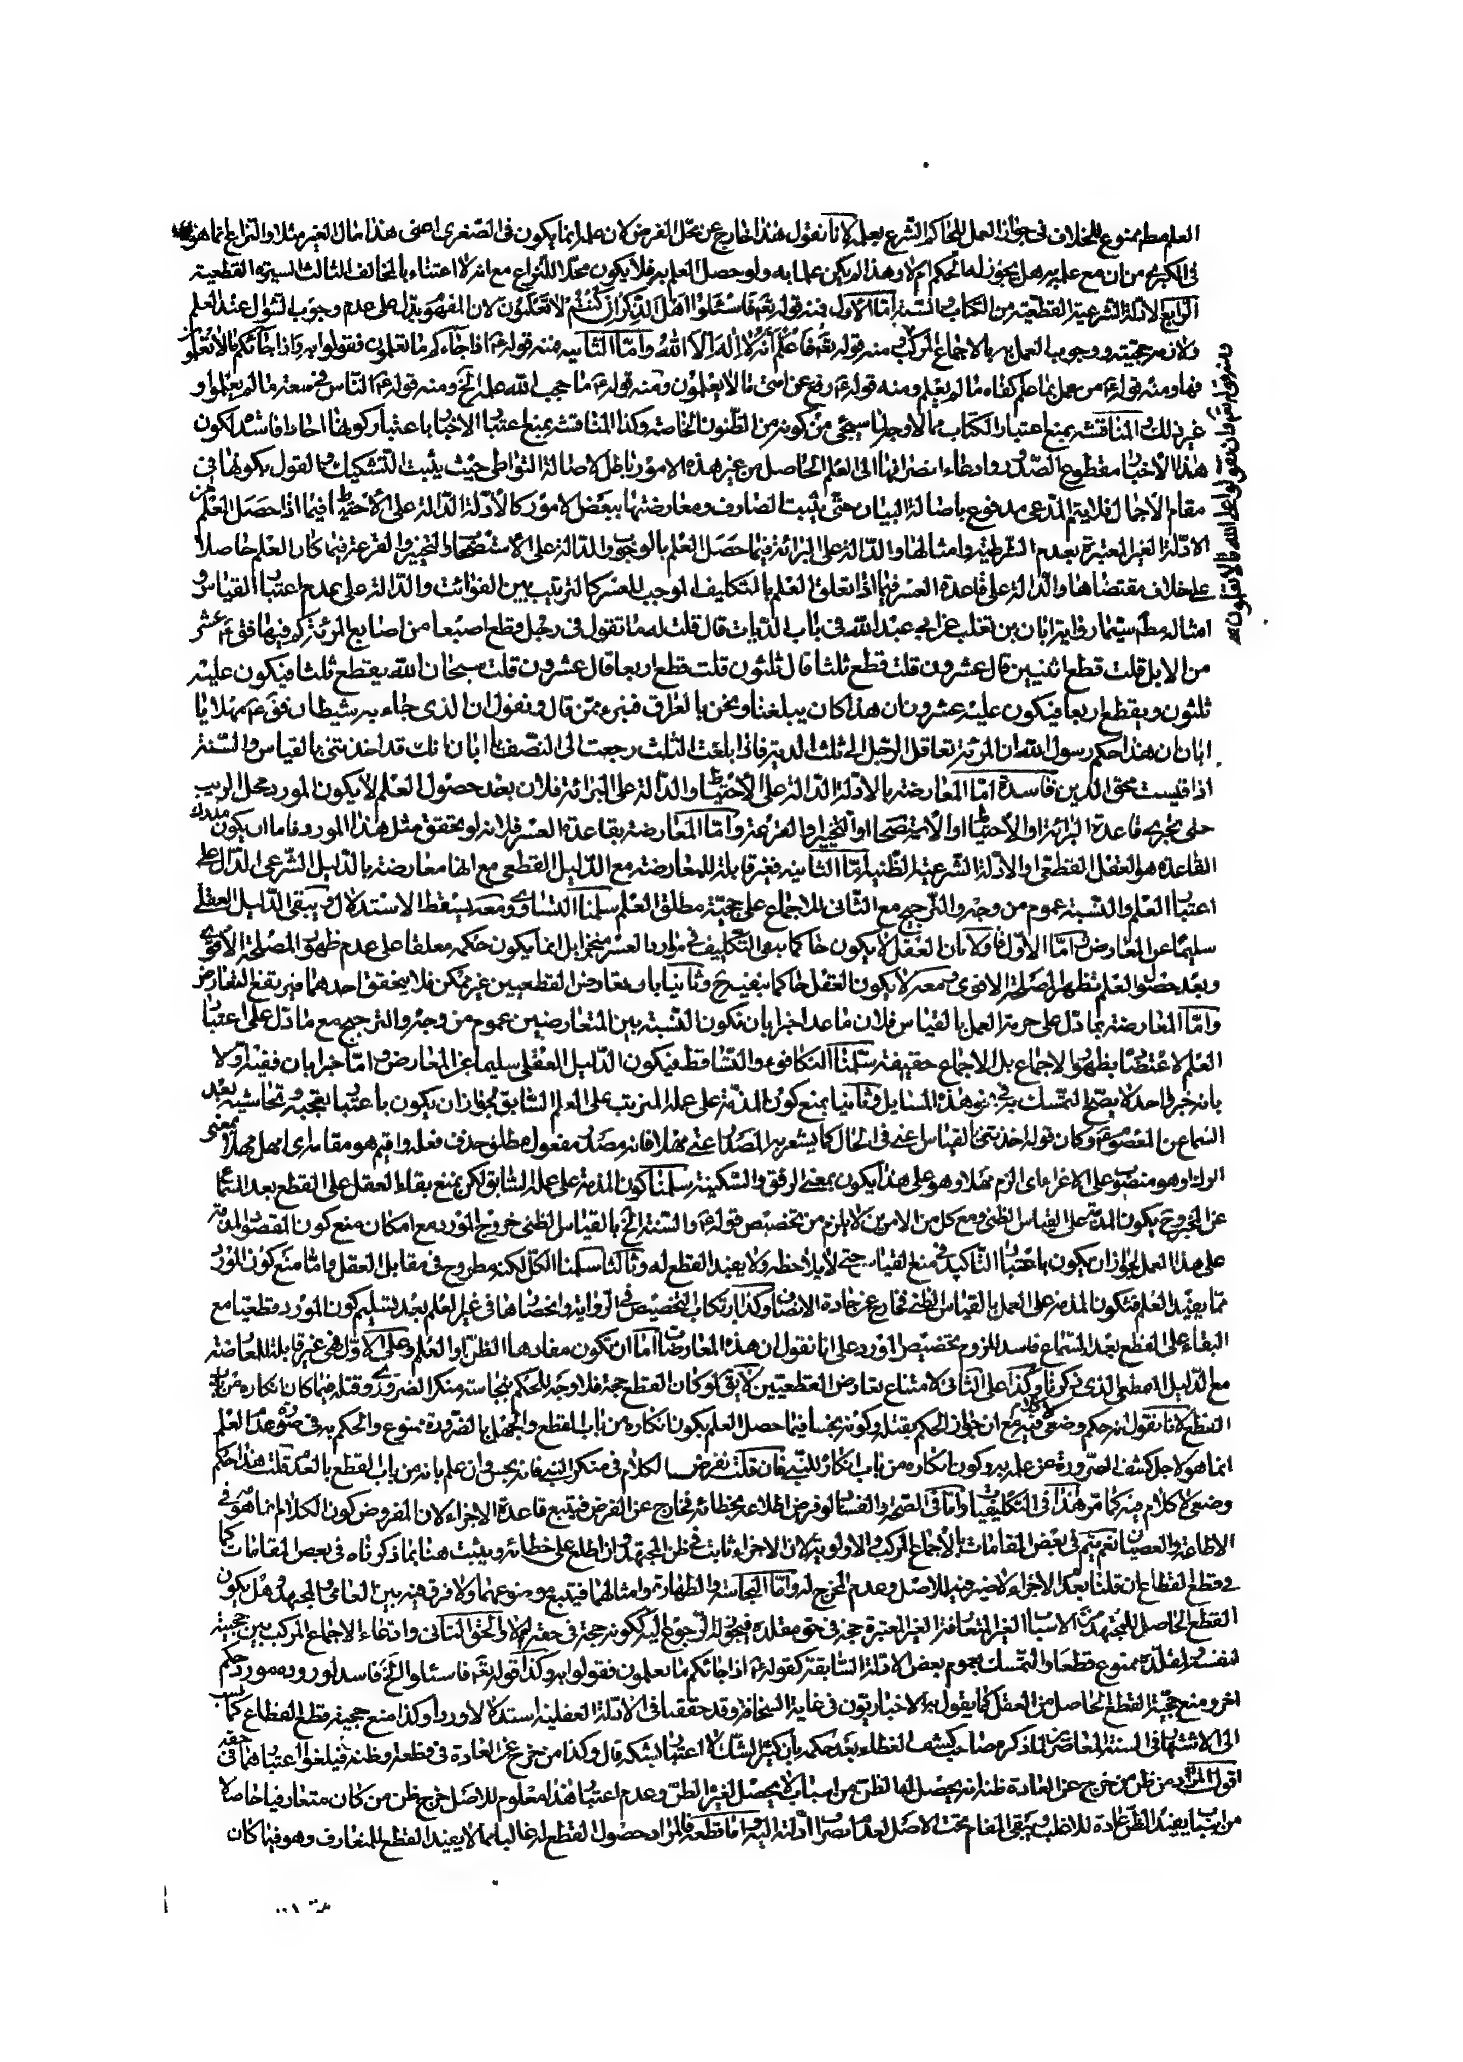 العلم مطم ممنوع للخلاف فى جواز العمل للحاكم الشرع بعلمه لانا نقول هذا خارج عن محل الفرض لان علمه انما يكون فى الصغرى اعنى هذا مال الغير مثلا والنزاع انما هو
فى الكبرى من ان مع علمه به هل يجوز له الحكم ام لا وهذا لم يكن علما به ولو حصل العلم به فلا يكون محلا للنزاع مع انه لا اعتناء بالمخالف الثالث السيرة القطعية
الرابع الادلة الشرعية القطعية من الكتاب والسنة اما الاول فمنه قوله تعم فاسئلوا اهل الذكر ان كنتم لا تعلمون لان المفهوم يدل على عدم وجوب السؤال عند العلم
ولازمه حجيته ووجوب العمل به بالاجماع المركب ومنه قوله تعم فاعلم أنه لا اله الا الله واما الثانيه فمنه قوله ع اذا جاءكم ما تعلمون فقولوا به واذا جائكم ما لا تعلمون
فها ومنه قوله ع من عمل بما علم كفاه ما لم يعلم ومنه قوله ع رفع عن امتى ما لا يعلمون ومنه قوله ع ما حجب الله علمه الخ ومنه قوله ع الناس فى سعة ما لم يعلموا و
غير ذلك والمناقشه بمنع اعتبار الكتاب مما لا وجه لما سيجئ من كونه من الظنون الخاصه وكذا المناقشه بمنع اعتبار الاخبار باعتبار كونها احادا فاسد لكون
هذا الاخبار مقطوع الصدور وادعاء انصرافها الى العلم الحاصل من غير هذه الامور باطل لاصالة التواطى حيث يثبت التشكيك والقول بكونها فى
مقام الاجمال فلا يتم المدعى مدفوع باصالة البيان حتى يثبت الصارف ومعارضتها ببعض الامور كالادلة الدالة على الاحتياط فيما اذا حصل العلم من
الادلة الغير المعتبرة بعدم الشرطية وامثالها والدالة على البرائة فيما حصل العلم بالوجوب والدالة على الاستصحاب والتخيير والقرعة فيما كان العلم حاصلا
على خلاف مقتضاها والدالة على قاعدة العسر فيما اذا تعلق العلم بالتكليف الموجب للعسر كالترتيب بين الفوائت والدالة على عدم اعتبار القياس و
امثاله مطم سيما رواية ابان بن تغلب عن ابى عبد الله فى باب الديات قال قلت له ما تقول فى رجل قطع اصبعا من اصابع المرئة كم فيها فق ع عشر
من الابل قلت قطع اثنيين قال عشرون قلت قطع ثلثا قال ثلثون قلت قطع اربعا قال عشرون قلت سبحان الله يقطع ثلثا فيكون عليه
ثلثون ويقطع اربعا فيكون عليه عشرون ان هذا كان يبلغنا ونحن بالعراق فنبرء ممن قال ونقول ان الذى جاء به شيطان فق ع مهلا يا
ابان ان هذا حكم رسول الله ان المرئة تعاقل الرجل الى ثلث الدية فاذا بلغت الثلث رجعت الى النصف يا ابان انك قد اخذتنى بالقياس والسنة
اذا قيست محق الدين فاسدة اما المعارضة بالادلة الدالة على الاحتياط والدالة على البرائة فلان بعد حصول العلم لا يكون المورد محل الريب
حتى يجرى قاعدة البرائة او الاحتياط او الاستصحاب او التخيير والقرعة واما المعارضة بقاعدة العسر فلانه لو تحقق مثل هذا المورد فاما ان يكون مدرك
القاعدة هو العقل القطعى والادلة الشرعية الظنية اما الثانيه فغير قابلة للمعارضة مع الدليل القطعى مع انها معارضة بالدليل الشرعى الدال على
اعتبار العلم والنسبة عموم من وجه والترجيح مع الثانى للاجماع على حجية مطلق العلم سلمنا التساوى ومعه يسقط الاستدلال ويبقى الدليل العقلى
سليما عن المعارض واما الاول فاولا بان العقل لا يكون حاكما بنفى التكليف فى موارد العسر منجزا بل انما يكون حكمه معلقا على عدم ظهور المصلحة الاقوى
وبعد حصول العلم تظهر المصلحة الاقوى ومعه لا يكون العقل حاكما بنفيه ح وثانيا بان تعارض القطعيين غير ممكن فلا يتحقق احدهما فيرتفع التعارض
واما المعارضة بما دل على حرمة العمل بالقياس فلان ما عدا خبر ابان تكون النسبة بين المتعارضين عموم من وجه والترجيح مع ما دل على اعتبار
العلم لاعتضاده بظهور الاجماع بل الاجماع حقيقة سلمنا التكافوء والتساقط فيكون الدليل العقلى سليما عن المعارض واما خبر ابان ففيه اولا
بانه خبر واحد لا يصح التمسك به فى نحو هذه المسايل وثانيا بمنع كون المذمة على عمله المترتب على العلم السابق لجواز ان يكون باعتبار تعجبه وتحاشيه بعد
السماع من المعصوم ع وكان قوله اخذتنى بالقياس عنى فى الحال كما يشعر به المصدر اعنى مهلا فانه مصدر مفعول مطلق حذف فعله واقيم هو مقامه اى امهل مهلا بمعنى
اترك او هو منصوب على الاغراء اى الزم مهلا وهو على هذا يكون بمعنى الرفق والسكينة سلمنا كون المذمة على عمله السابق لكن بمنع بقاء العقل على القطع بعد السماع
عن المجروح يكون المذمة على القياس الظنى ومع كل من الامرين لا يلزم من تخصيص قوله ع والسنة الخ بالقياس الظنى خروج المورد مع امكان منع كون المقصود المذمة
على هذا العمل لجواز ان يكون باعتبار التاكيد فى منع القياس حتى لا يلاحظه ولا يفيد القطع له وثالثا سلمنا الكل لكنه مطروح فى مقابل العقل واما منع كون المورد
مما يفيد العلم فتكون المذمة على العمل بالقياس الظنى فخارج عن جادة الانصاف وكذا ارتكاب التخصيص فى الرواية واختصاصها فى غير العلم بعد تسليم كون المورد قطعيا مع
البقاء على القطع بعد السماع فاسد للزوم تخصيص المورد على انا نقول ان هذه المعارضات اما ان تكون مفادها الظن او العلم وعلى الاول فهى غير قابلة للمعارضة
مع الدليل القطعى الذى ذكرناه وكذا على الثانى لامتناع تعارض القطعيين لا يق لو كان القطع حجة فلا وجه للحكم بنجاسة منكر الضرورى وقتله فيما كان انكاره من باب
القطع لانا نقول انه حكم وضعى لا كلام فيه مع ان جواز الحكم بقتله وكونه نجسا فيما حصل العلم بكون انكاره من باب القطع والجهل بالضرورة ممنوع والحكم به فى صورة عدم العلم
انما هو لاجل كشف الضرورة عن علمه به وكون انكاره من باب انكار للنبى فان قلت نفرض الكلام فى منكر النبى فانه نجس وان علم بانه من باب القطع بالعدم قلت هذا حكم
وضعى لا كلام فيه كما مر هذا فى التكليفيات واما فى الصحة والفساد لو فرض اطلاعه بخطائه فخارج عن الفرض فيتبع قاعدة الاجزاء لان المفروض كون الكلام انما هو فى
الاطاعة والعصيان نعم يتم فى بعض المقامات بالاجماع المركب والاولوية لان الاجزاء ثابت فى ظن المجتهد وان اطلع على خطائه ويثبت هنا بما ذكرناه فى بعض المقامات كما
فى قطع القطاع ان قلنا بعدم الاجزاء لا ضير فيه للاصل وعدم المخرج له واما النجاسة والطهارة وامثالهما فيتبع موضوعهما ولا فرق فيه بين العامى والمجتهد وهل يكون
القطع الحاصل للمجتهد من الاسباب الغير المتعارفة الغير المعتبرة حجة فى حق مقلده فيجوز له الرجوع اليه لكونه حجة فى حقه ام لا والحق الثانى وادعاء الاجماع المركب بين حجيته
لنفسه ولمقلده ممنوع قطعا والتمسك بعموم بعض الادلة السابقة كقوله ع اذا جائكم ما تعلمون فقولوا به وكذا قوله تعم فاسئلوا الخ فاسد لوروده مورد حكم
اخر ومنع حجية القطع الحاصل من العقل كما يقول به الاخباريون فى غاية السخافة وقد حققنا فى الادلة العقلية استدلالا وردا وكذا منع حجية قطع القطاع كما نسب
الى الاشتهار فى السنة المعاصرين لما ذكره صاحب كشف الغطاء بعد حكمه بان كثير الشك لا اعتبار بشكه قال وكذا من خرج عن العادة فى قطعه وظنه فيلغوا اعتبارهما فى حقه
اقول المراد من ظن من خرج عن العادة ظنا انه يحصل له الظن من اسباب لا يحصل لغيره الظن وعدم اعتبار هذا معلوم للاصل خرج ظن من كان متعارفيا حاصلا
من سبب يفيد الظن عادة للاغلب ويبقى المقام تحت الاصل لعدم انصراف ادلته اليه واما قطعه فالمراد حصول القطع له غالبا بما لا يفيد القطع للمتعارف وهو فيما كان
ومنه قوله تعم وان تقولوا على الله ما لا تعلمون